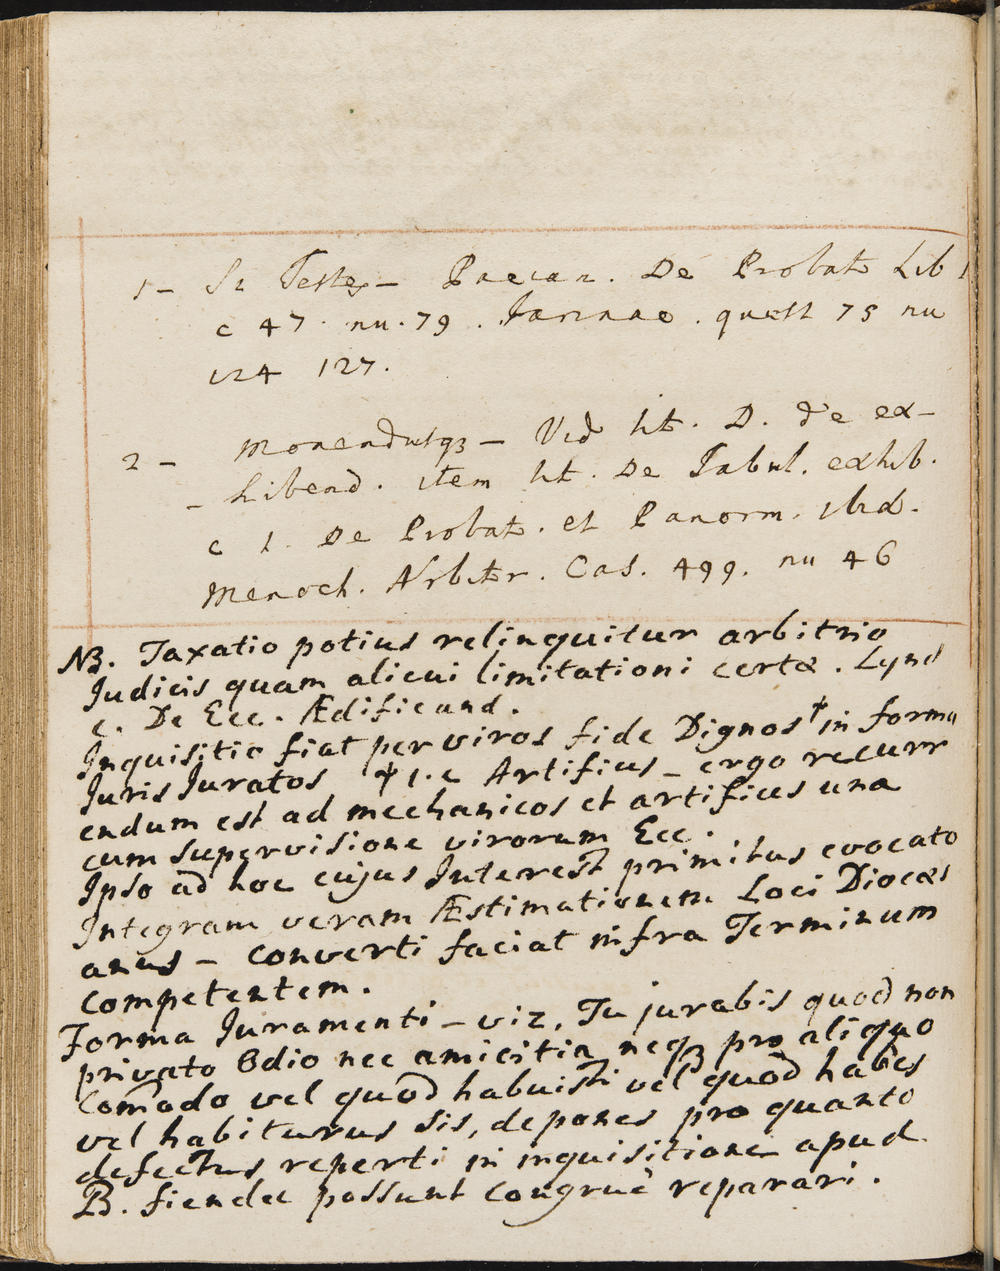 1 - Si Testes - Paecan. De Probat Lib 1
c 47. nu. 79. Farinac. quest 75 nu
124 127.
2 - Monendusqz - Vid tit. D. de ex-
- hibend. item tit. De Tabul. exhib.
c 1. De Probat. et Panorm. ibid.
Menoch. Arbitr. Cas. 499. nu 46
NB. Taxatio potius relinquitur arbitrio
Judicis quam alicui limitationi certæ. Lynd
c. De Ecc. Ædificand.
Inquisitio fiat per viros fide Dignos † in forma
Juris Juratos † i.e Artifices - ergo recurr
endum est ad mechanicos et artifices una
cum supervisione virorum Ecc.
Ipso ad hoc cujus Interest primitus evocato
Integram veram Æstimationem Loci Diocæs
anus - converti faciat infra Terminum
competentem.
Forma Juramenti - viz, Tu jurabis quod non
privato Odio nec amicitia neqz pro aliquo
Com̄odo vel quod habuisti vel quod habes
vel habiturus sis, depones pro quanto
defectus reperti in inquisitione apud
B. fiendee possunt congruè reparari.